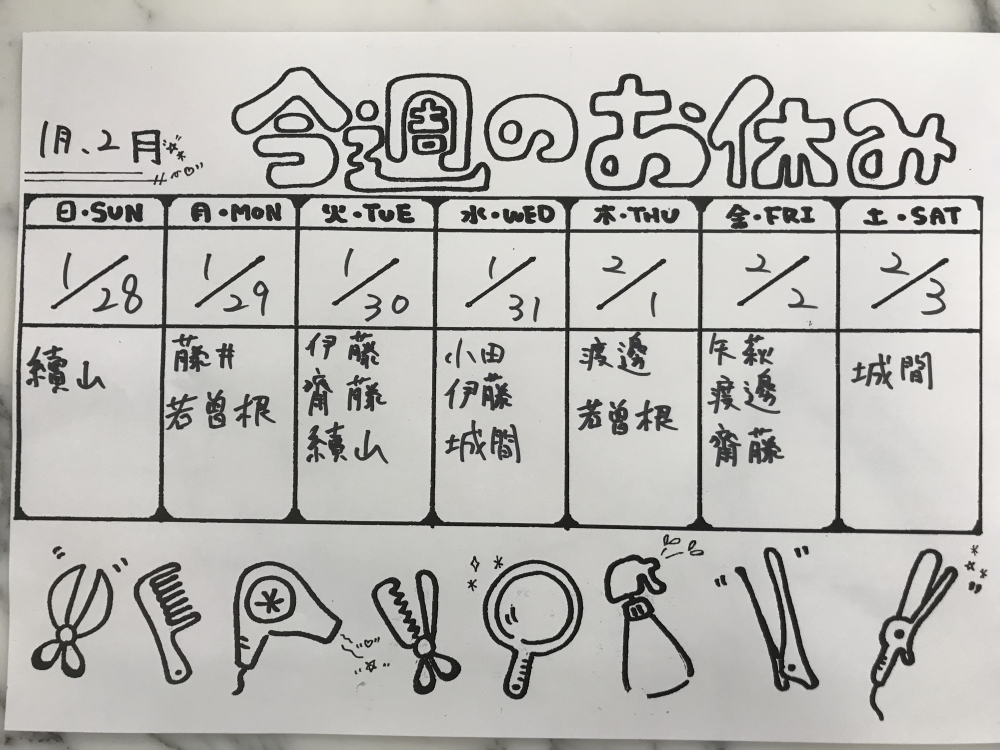 1月、2月
今週のお休み
日・SUN 月・MON 火・TUE 水・WED 木・THU 金・FRI 土・SAT
1/28 1/29 1/30 1/31 2/1 2/2 2/3
續山
藤井
若曽根
伊藤
齋藤
續山
小田
伊藤
城間
渡邊
若曽根
矢萩
渡邊
齋藤
城間